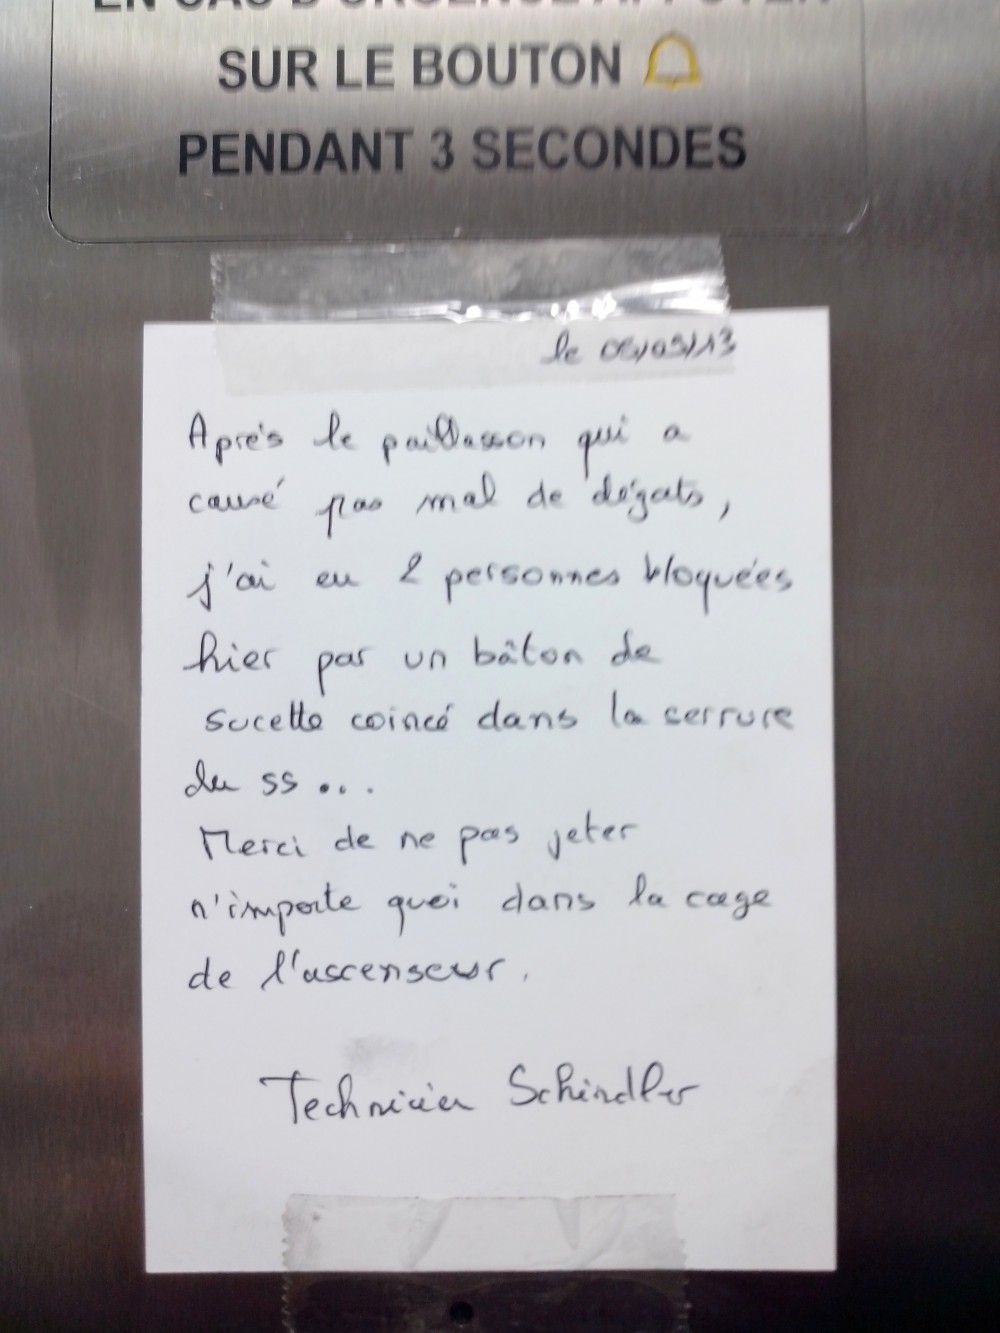 EN CAS D'URGENCE APPUYER
SUR LE BOUTON
PENDANT 3 SECONDES
le 06/05/13
Après le paillasson qui a
causé pas mal de dégats,
j'ai eu 2 personnes bloquées
hier par un bâton de
sucette coincé dans la serrure
du ss...
Merci de ne pas jeter
n'importe quoi dans la cage
de l'ascenseur.
Technicien Schindler